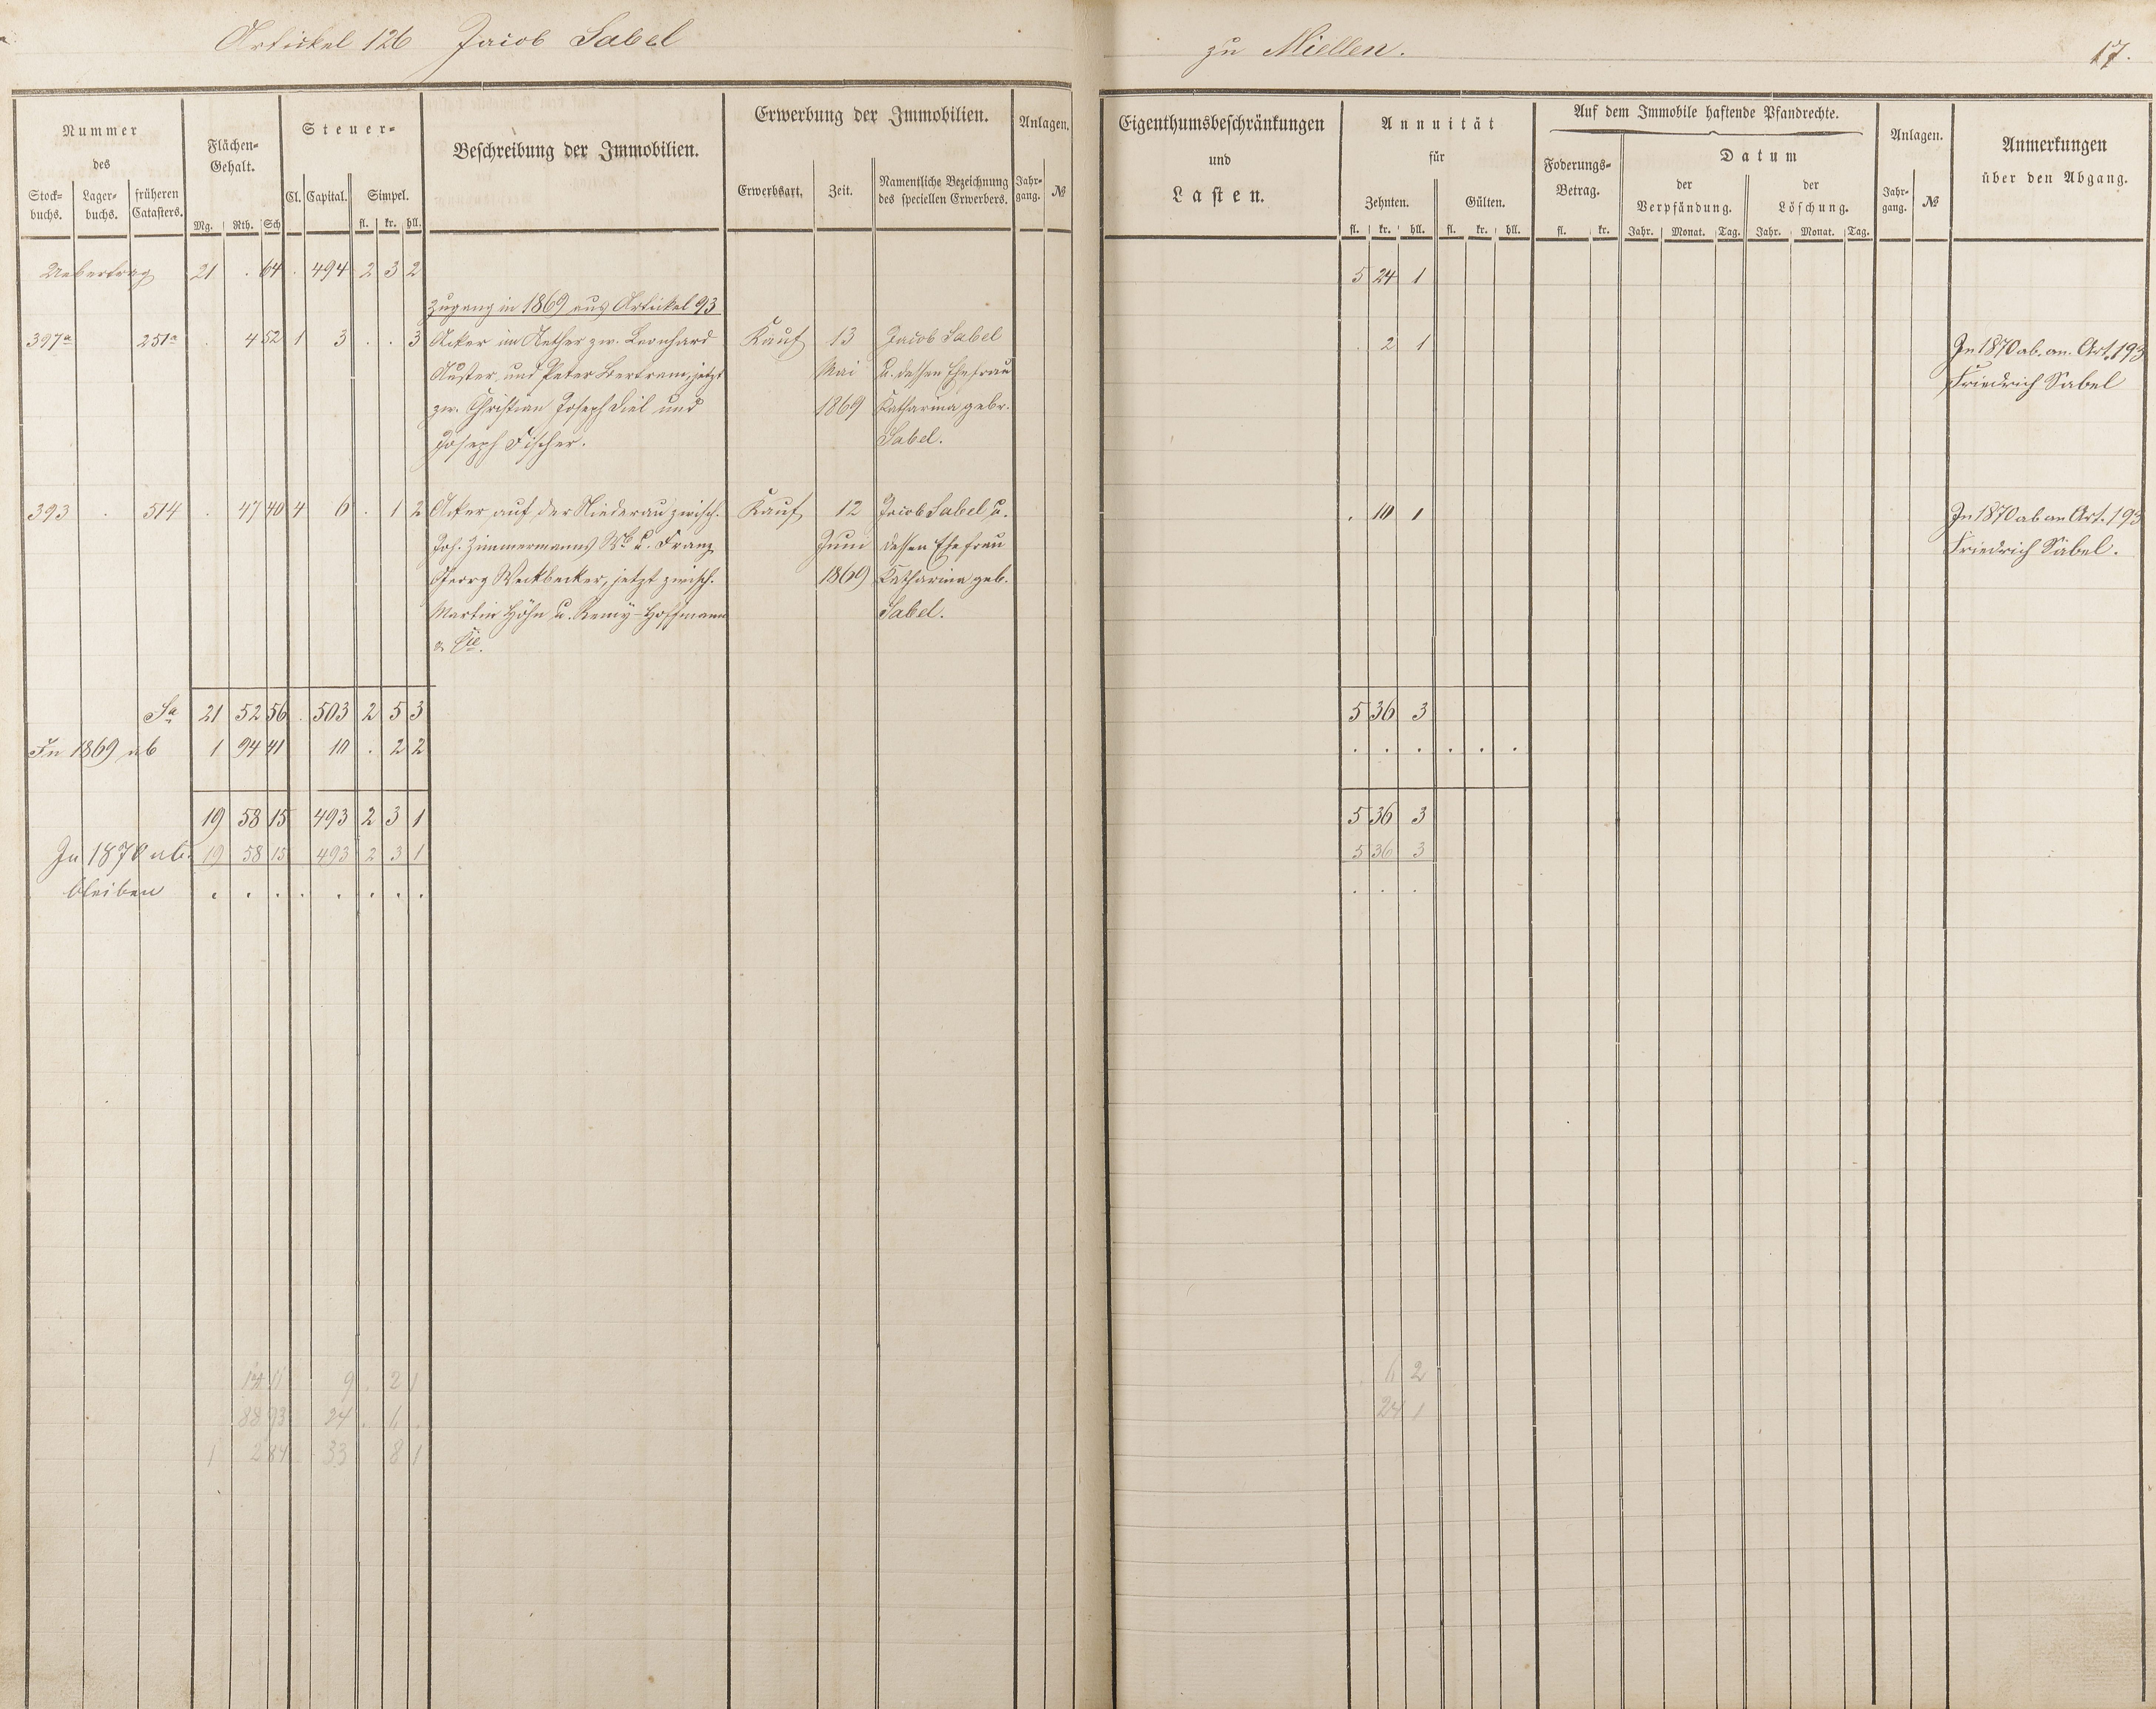 Artickel 126 Jacob Sabel
zu Miellen.
17.
Nummer
des
Stock-
buchs.
Lager-
buchs.
früheren
Catasters.
Flächen-
Gehalt.
Mg. Rth. Sch
Steuer-
Cl. Capital. Simpel.
fl. kr. hll.
Beschreibung der Immobilien.
Erwerbung der Immobilien.
Erwerbsart. Zeit.
Namentliche Bezeichnung
des speciellen Erwerbers.
Anlagen.
Jahr-
gang.
№
Eigenthumsbeschränkungen
und
Lasten.
Annuität
für
Zehnten. Gülten.
fl. kr. hll. fl. kr. hll.
Auf dem Immobile haftende Pfandrechte.
Foderungs-
Betrag.
fl. kr.
Datum
der
Verpfändung.
der
Löschung.
Jahr. Monat. Tag. Jahr. Monat. Tag.
Anlagen.
Jahr-
gang.
№
Anmerkungen
über den Abgang.
Uebertrag 21 . 64 . 494 2 3 2 5 24 1
Zugang in 1869 aus Artickel 93
397a 251a . 4 52 1 3 . . 3 Acker im Aether zw. Leonhard Kauf 13 Jacob Sabel . 2 1 In 1870 ab. an. Art. 193
Auster, und Peter Bertram, jetzt Mai u. dessen Ehefrau Friedrich Sabel
zw. Christian Joseph Diel und 1869 Katharina gebr.
Joseph Fischer. Sabel.
393 . 514 . 47 40 4 6 . 1 2 Acker, auf der Niederau zwisch. Kauf 12 Jacob Sabel u. . 10 1 In 1870 ab an Art. 193
Joh. Zimmermanns Wb u. Franz Juni dessen Ehefrau Friedrich Sabel.
Georg Weckbecker, jetzt zwisch. 1869 Katharina geb.
Martin Höhn u. Remy-Hoffmann Sabel.
& Cie.
Sa 21 52 56 . 503 2 5 3 5 36 3
In 1869 ab 1 94 41 10 . 2 2 . . . . . .
19 58 15 493 2 3 1 5 36 3
In 1870 ab. 19 58 15 493 2 3 1 5 36 3
bleiben . . . . . . . . . . .
14 11 9 . 2 1 . 6 2
88 93 24 . 6 . 24 1
1 2 84 33 8 1